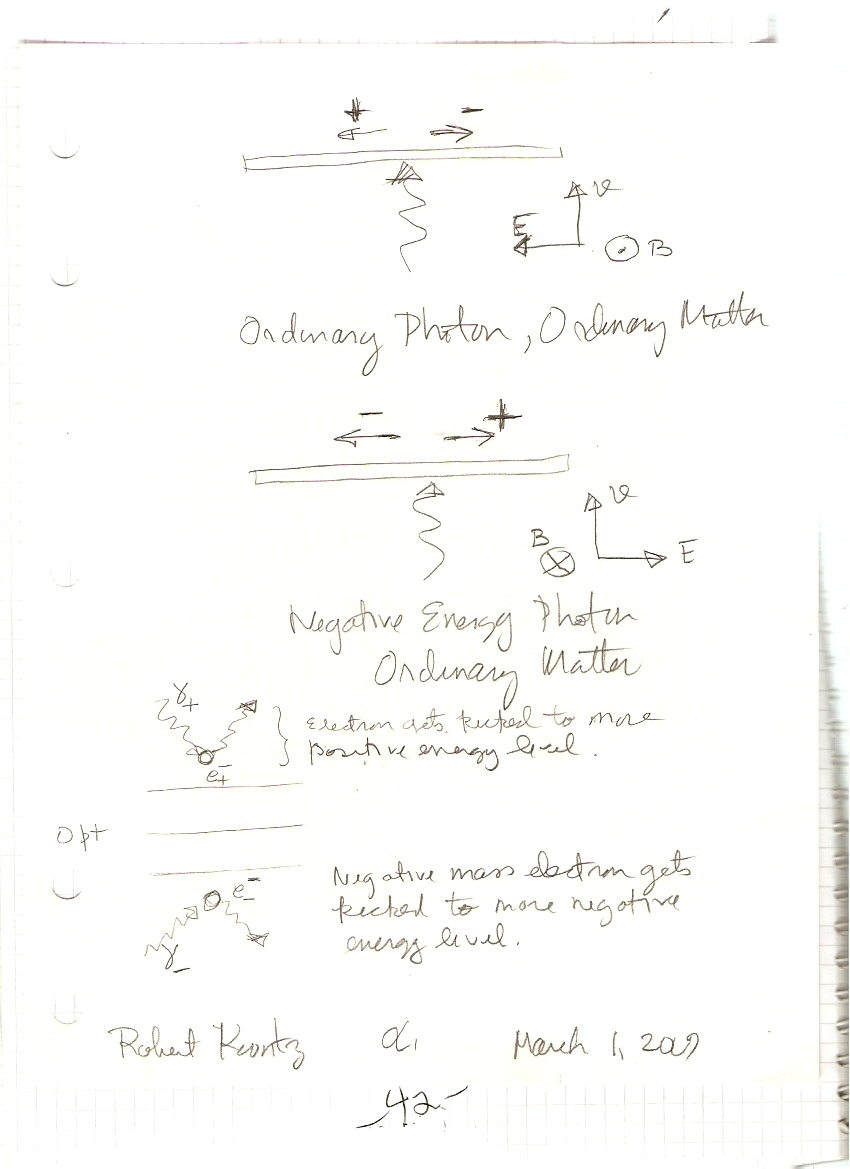 + -
E v B
Ordinary Photon, Ordinary Matter
- +
B v E
Negative Energy Photon
Ordinary Matter
γ+
Electron gets kicked to more
positive energy level.
e-+
Opt
e--
Negative mass electron gets
kicked to more negative
energy level.
γ-
Robert α1 March 1, 2009
42